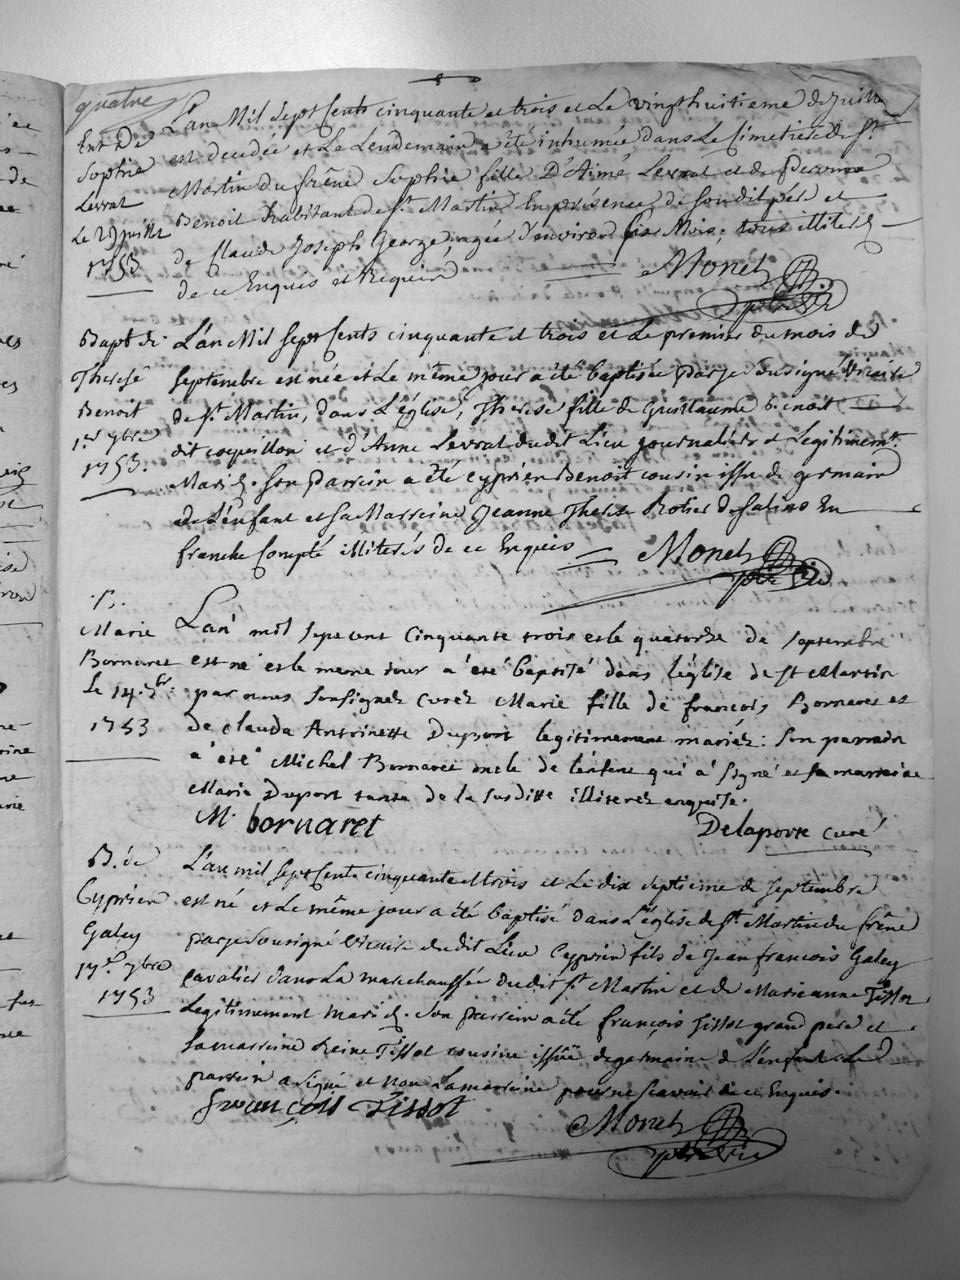 quatre
Ent. De
Sophie
Levrat
Le 29 juillet
1753
L'an Mil Sept Cents cinquante et trois et Le vingt huitieme de Juillet
est decedée et Le Lendemain a été inhumée dans Le Cimetiere de St
Martin du frêne Sophie fille D'Aimé Levrat et de
Benoit habitant de St Martin En présence de son dit père et
de Claude Joseph George, agée d'environ six Mois, tous illiterés
de ce Enquis et Requis
Monet
ptre vic
Bapt. de
Therese
Benoit
1er 7bre
1753.
L'an Mil Sept Cents cinquante et trois et Le premier du mois de
Septembre est née et Le même jour a été baptisée par je Sousigné Vicaire
de St Martin, dans L'église, Therese fille de Guillaume benoit
dit coquillon et d'Anne Levrat dudit Lieu journaliers et Legitimemt
Mariés. Son parrein a été Cyprien Benoit cousin issu de germain
de L'enfant et sa Marreine Jeanne Therese Rotier de Salins En
franche Compté illiterés de ce Enquis
Monet
ptre vic
B.
Marie
Bornaret
Le 14 7br
1753
L'an mil sept cent cinquante trois et le quatorze de septembre
est né et le meme jour a été baptisé dans l'église de st Martin
par nous soussignez curez Marie fille de francois Bornaret et
de clauda Antoinette Duport legitimement mariéz : son parrain
a été Michel Bornaret oncle de l'enfent qui a signé et sa marraine
Marie Duport tante de la susditte illiterez enquise.
M. bornaret
Delaporte curé
B. de
Cyprien
Galey
17e 7bre
1753
L'an mil Sept Cents cinquante et trois et Le dix septieme de septembre
est né et Le même jour a été baptisé dans L'église de St Martin du frêne
par je Sousigné Vicaire dudit Lieu Cyprien fils de Jean francois Galey
Cavalier dans La marechaussée dudit St Martin et de Marie anne Tissot
Legitimement mariés. Son parrein a été françois Tissot grand pere et
sa marreine Reine Tissot cousine issüe de germaine de L'enfant Le
parrein a signé et non La marreine pour ne scavoir de ce Enquis.
françois Tissot
Monet
ptre vic